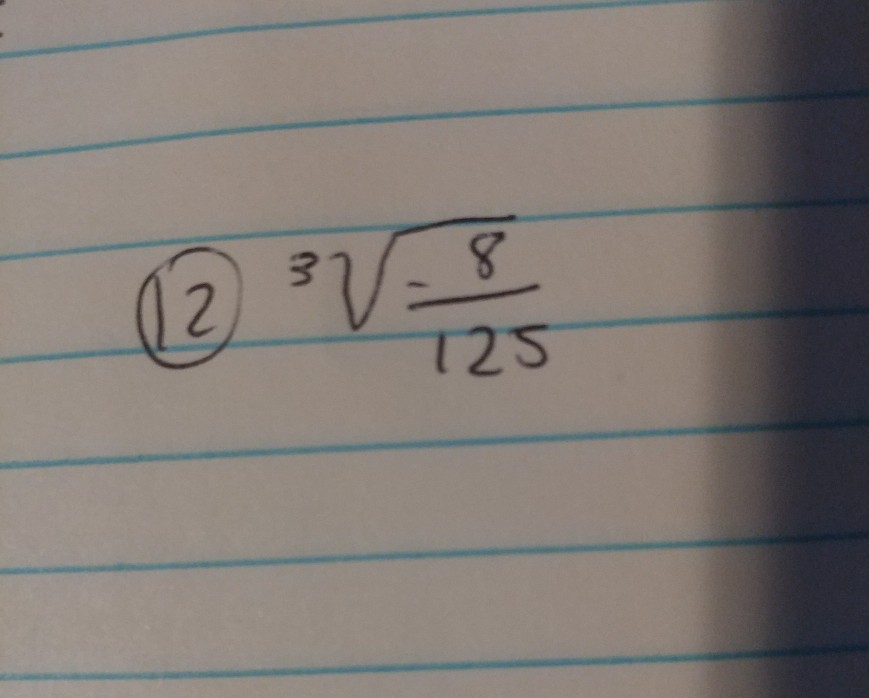 12 ³√-8
125